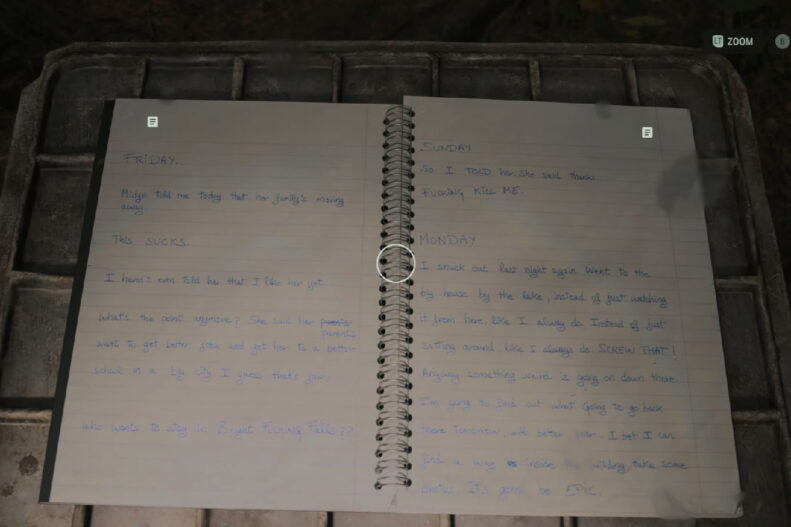 LT ZOOM
B
FRIDAY.
Midge told me today that her family's moving
away.
This SUCKS.
I haven't even told her that I like her yet
What's the point anymore? She said her parents
parents
want to get better jobs and get her to a better
school in a big city. I guess that's fair.
Who wants to stay in Bright Fucking Falls??
SUNDAY
So I TOLD her. She said thanks.
FUCKING KILL ME.
MONDAY
I snuck out last night again. Went to the
big house by the lake, instead of just watching
it from here, like I always do. Instead of just
sitting around, like I always do SCREW THAT!
Anyway, something weird is going on down there.
I'm going to find out what. Going to go back
there tomorrow, with better. I bet I can
find a way inside building, take some
photos. It's gonna be EPIC.